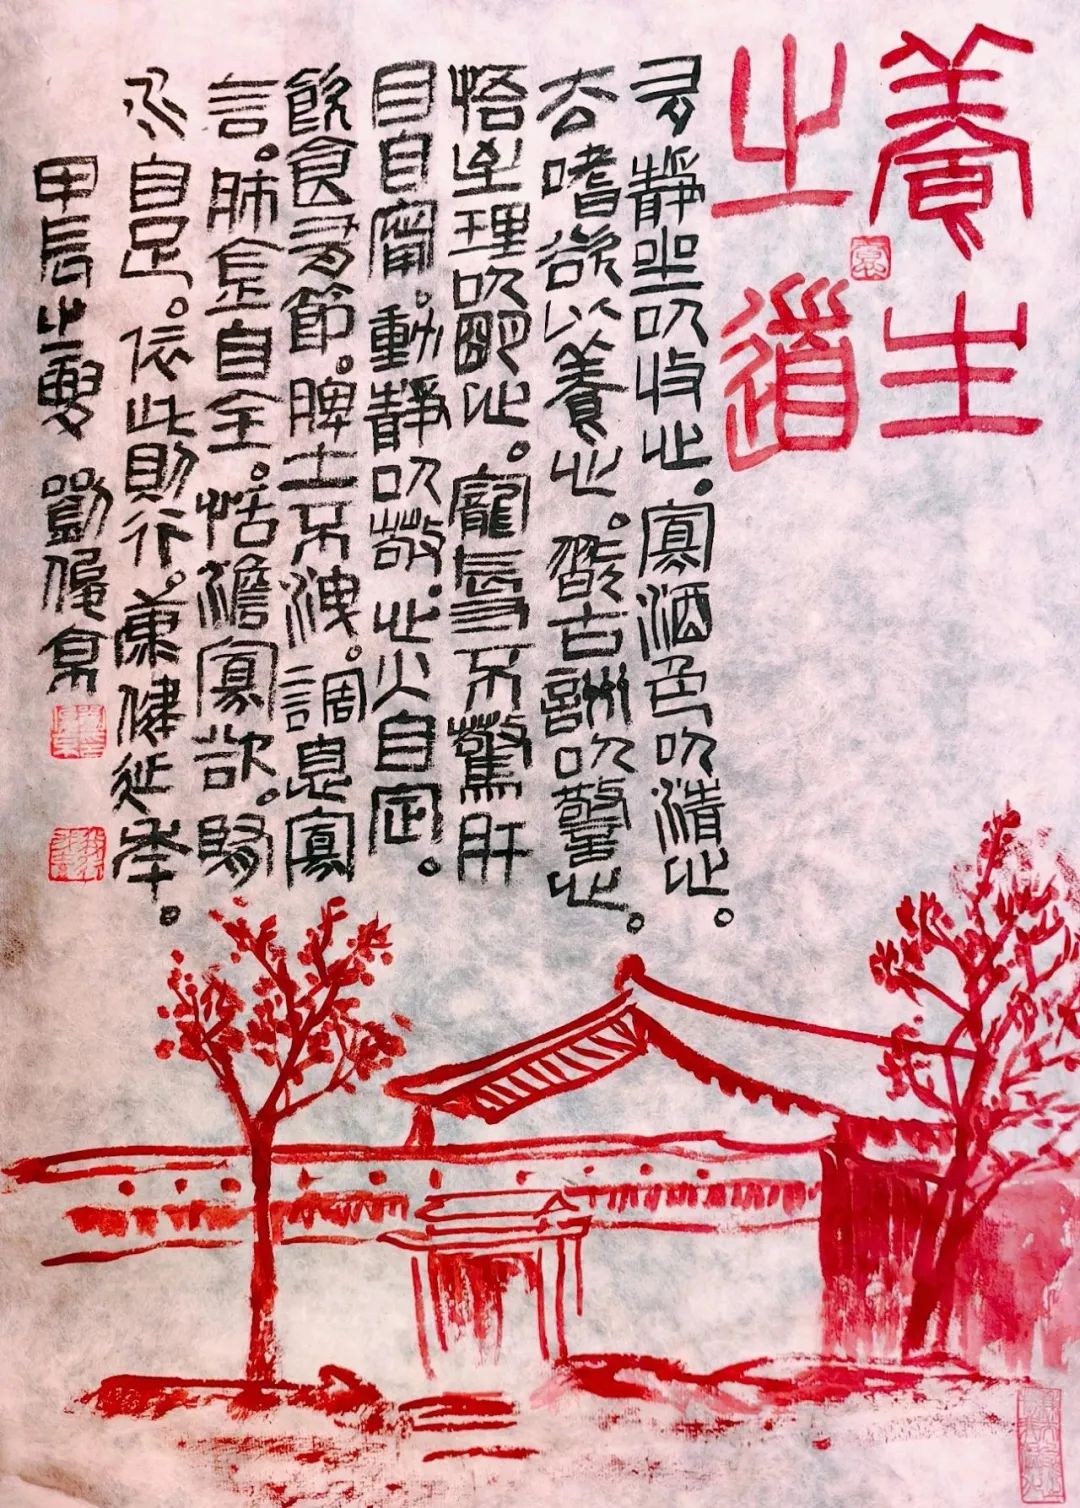 養生
之道
多靜坐以收心。寡酒色以清心。
去嗜欲以養心。翫古訓以警心。
悟至理以明心。寵辱不驚肝
目自甯。動靜以敬。心火自定。
飲食有節。脾土不洩。調息寡
言。肺金自全。恬澹寡欲。腎
水自足。依此則行。康健延年。
甲辰之夏 劉